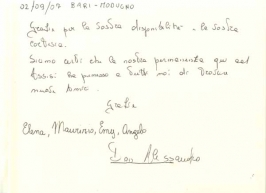 02/09/07 BARI - MODUGNO
Grazie per la vostra disponibilità e la vostra
cortesia.
Siamo certi che la nostra permanenza qui ad
Assisi ha permesso a tutti noi di
Grazie
Elena, Maurizio, Emy, Angelo
Don Alessandro